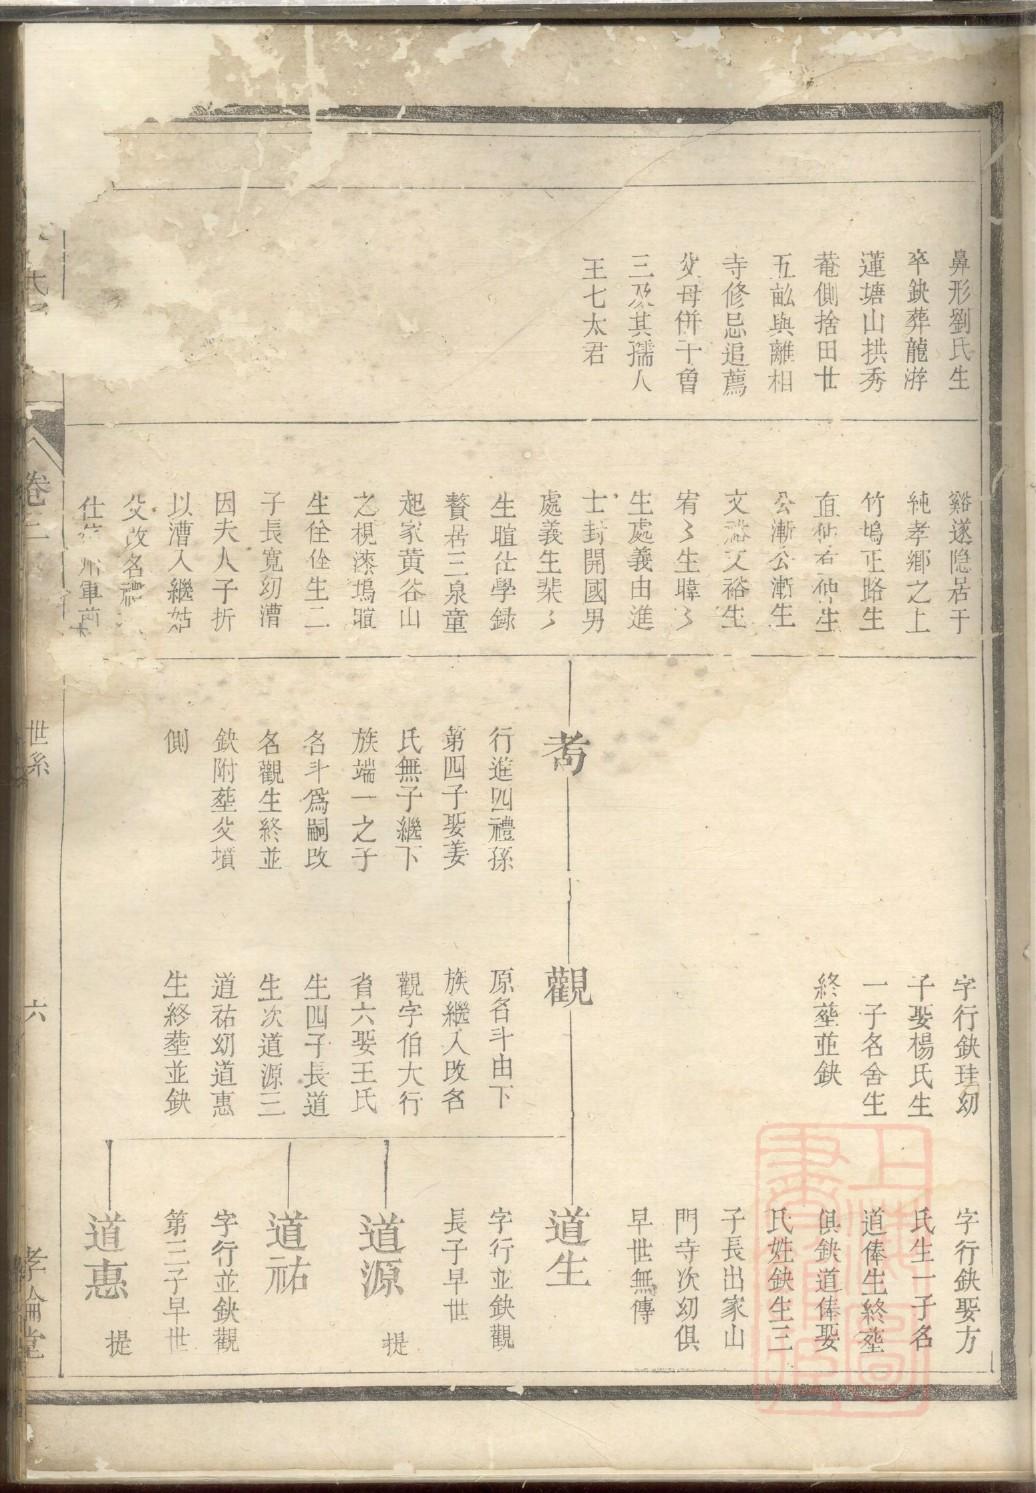 鼻形劉氏生
卒鈌葬龍游
蓮塘山拱秀
菴側捨田廿
五畝與離相
寺修忌追薦
父母併千曾
三及其孺人
王七太君
谿遂隐居于
純孝鄉之上
竹塢正路生
直 生
公漸公漸生
文裕文裕生
宥〻生暲〻
生處義由進
士封開國男
處義生棐〻
生暄仕學録
贅居三泉童
起家黄谷山
之梘漆塢暄
生佺佺生二
子長寛幼漕
因夫人子折
以漕入繼姑
父改名禮
仕 州軍
耇
行進四禮孫
第四子娶姜
氏無子繼下
族端一之子
名斗爲嗣改
名觀生終並
鈌附塟父墳
側
字行鈌珪幼
子娶楊氏生
一子名舍生
終塟並鈌
觀
原名斗由下
族繼入改名
觀字伯大行
省六娶王氏
生四子長道
生次道源三
道祐幼道惠
生終塟並鈌
字行鈌娶方
氏生一子名
道俸生終塟
俱鈌道俸娶
氏姓鈌生三
子長出家山
門寺次幼俱
早世無傳
道生
字行並鈌觀
長子早世
道源
提
道祐
字行並鈌觀
第三子早世
道惠
提
氏
卷二
世系
六
孝倫堂
上海圖書館藏